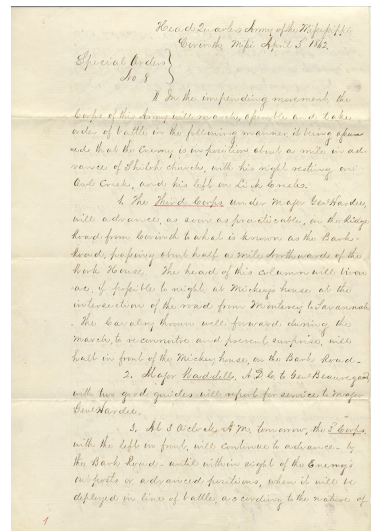 Head Quarters Army of the Mississippi
Corinth Miss. April 3. 1862.
Special Orders
No 8
II In the impending movement, the
Corps of this Army will march, assemble and take
order of battle in the following manner, it being assu-
med that the Enemy is in position about a mile in ad-
vance of Shiloh church, with his right resting on
Owl Creek, and his left on Lick Creek.
1. The Third Corps under Major Genl Hardee,
will advance, as soon as practicable, on the Ridge
Road from Corinth to what is known as the Bark
Road, passing about half a mile Northwards of the
Work House. The head of this column will bivou-
ac, if possible to night at Mickey's house at the
intersection of the road from Monterey to Savannah
The Cavalry thrown well forward during the
march, to reconnoitre and prevent surprise, will
halt in front of the Mickey house, on the Bark Road.
2. Major Waddell, A.D.C. to Genl Beauregard,
with two good guides will report for service to Major
Genl Hardee.
3. At 3 O'clock A.M. tomorrow, the 3d Corps,
with the left in front, will continue to advance by
the Bark Road until within sight of the Enemy's
outposts or advanced positions, when it will be
deployed in line of battle, according to the nature of